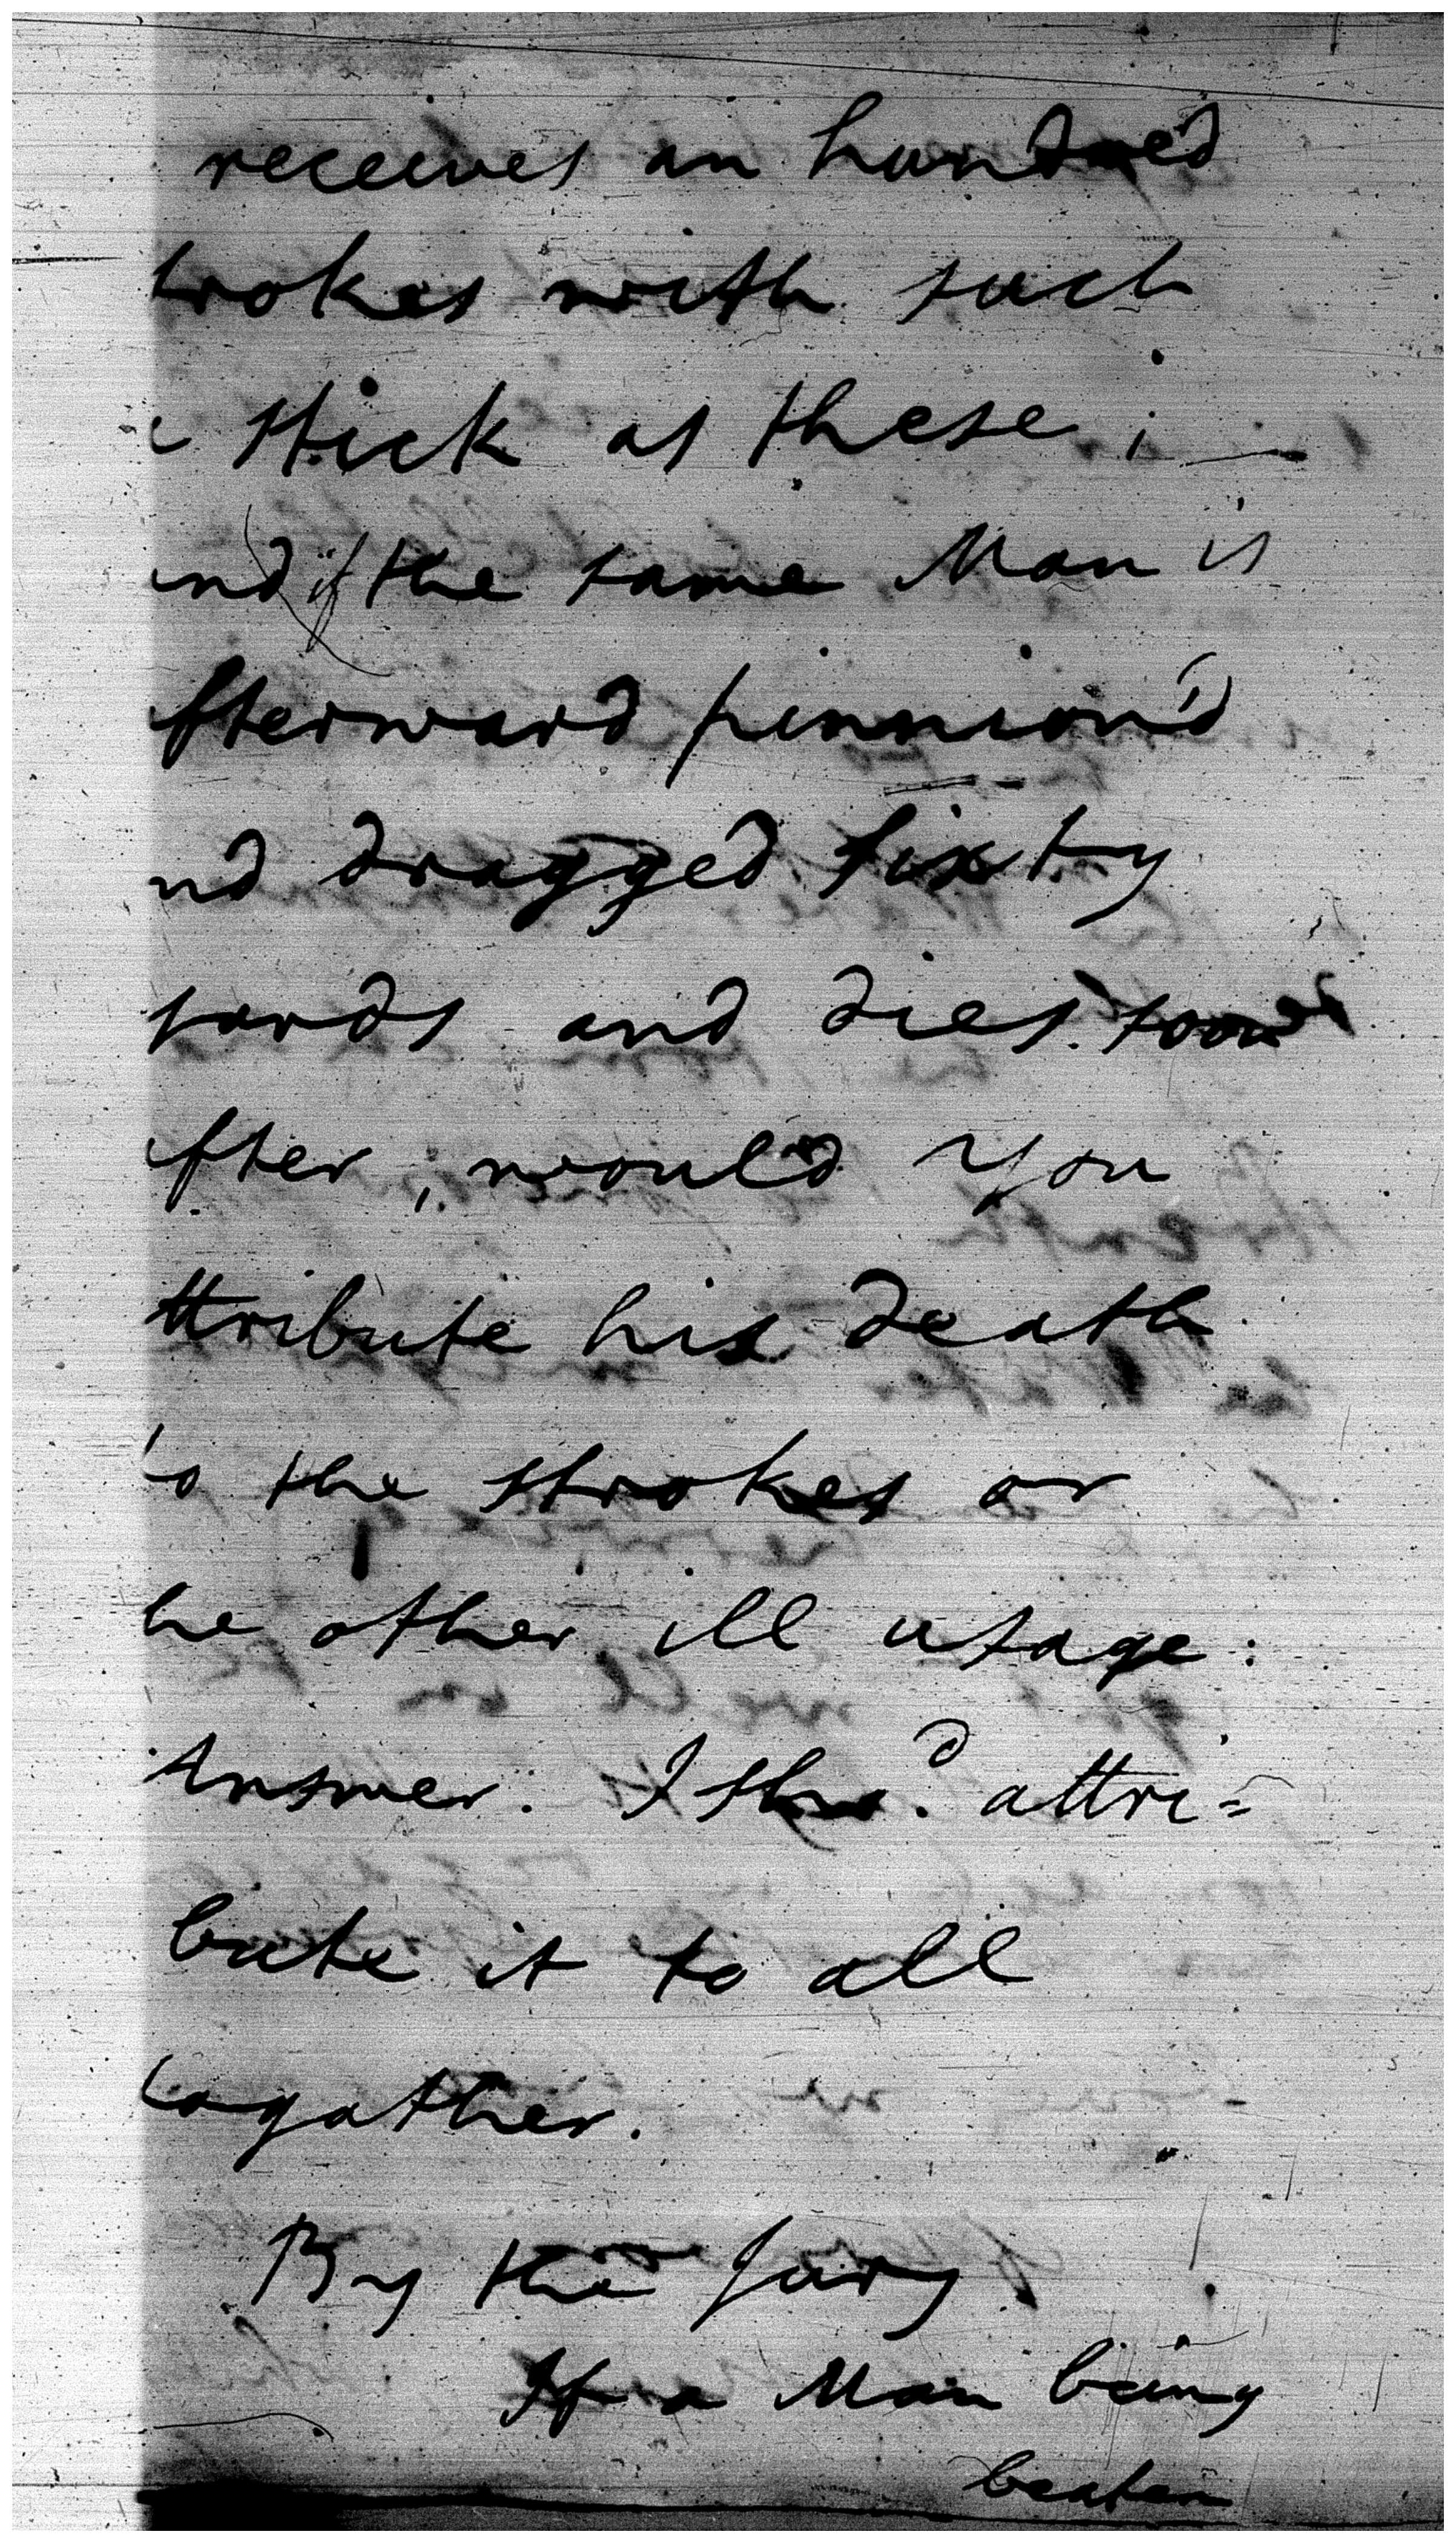 receives an hundred
trokes with such
a stick as these; —
and if the same Man is
fterward pinnion'd
nd dragged sixty
yards and dies soon
fter; would you
ttribute his death
to the strokes or
he other ill usage:
Answer. I shod. attri=
bute it to all
togather.
By the Jury
If a Man being
beaten